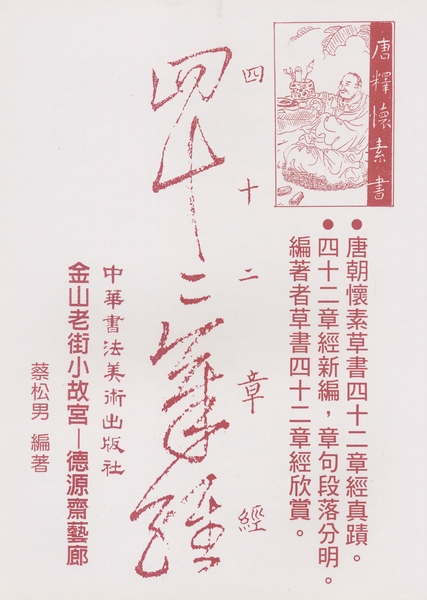 唐釋懷素書
●唐朝懷素草書四十二章經真蹟。
●四十二章經新編，章句段落分明。
編著者草書四十二章經欣賞。
四十二章經
四十二章經
中華書法美術出版社
金山老街小故宮—德源齋藝廊
蔡松男 編著